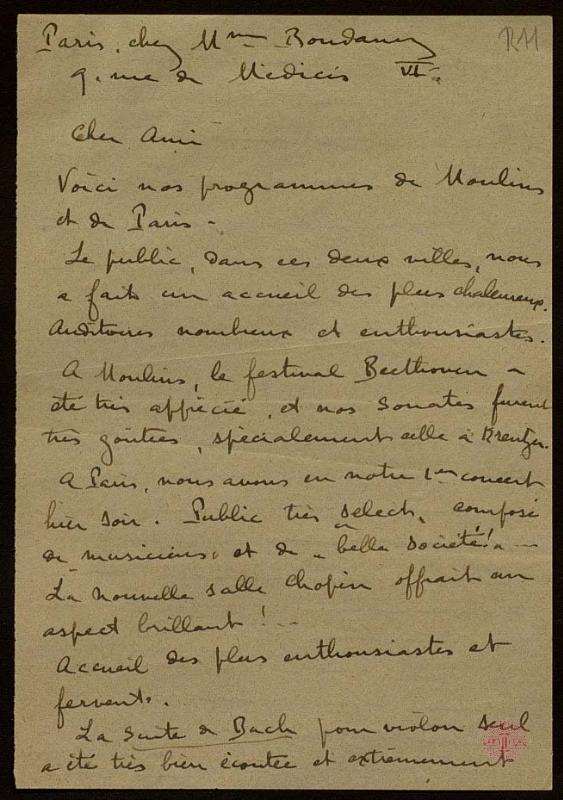 Paris, chez Mme
R11
9, rue de Médicis VIe
Cher Ami
Voici nos programmes de Moulins
et de Paris -
Le public, dans ces deux villes, nous
a fait un accueil des plus chaleureux.
Auditoires nombreux et enthousiastes.
A Moulins, le festival Beethoven a
été très apprécié, et nos Sonates furent
très goûtées, spécialement celle à Kreutzer.
A Paris, nous avons eu notre 1er concert
hier soir. Public très select, composé
de musiciens et de "bella société!"...
La nouvelle salle Chopin offrait un
aspect brillant!...
Accueil des plus enthousiastes et
fervents.
La Suite de Bach pour violon seul
a été très bien écoutée et extrêmement